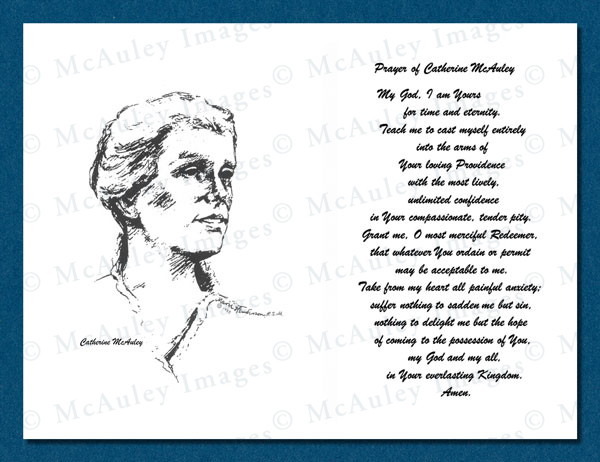 Prayer of Catherine McAuley
My God, I am Yours
for time and eternity.
Teach me to cast myself entirely
into the arms of
Your loving Providence
with the most lively,
unlimited confidence
in Your compassionate, tender pity.
Grant me, O most merciful Redeemer,
that whatever You ordain or permit
may be acceptable to me.
Take from my heart all painful anxiety;
suffer nothing to sadden me but sin,
nothing to delight me but the hope
of coming to the possession of You,
my God and my all,
in Your everlasting Kingdom.
Amen.
Catherine McAuley
© McAuley Images © McAuley Images
© McAuley Images © McAuley Images
© McAuley Images © McAuley Images
© McAuley Images © McAuley Images
© McAuley Images © McAuley Images
© McAuley Images © McAuley Images